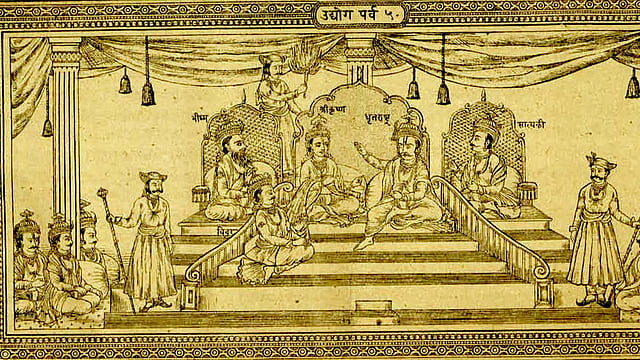 उद्योग पर्व ५.
भीष्म
श्रीकृष्ण
धृतराष्ट्र
सात्यकी
विदुर